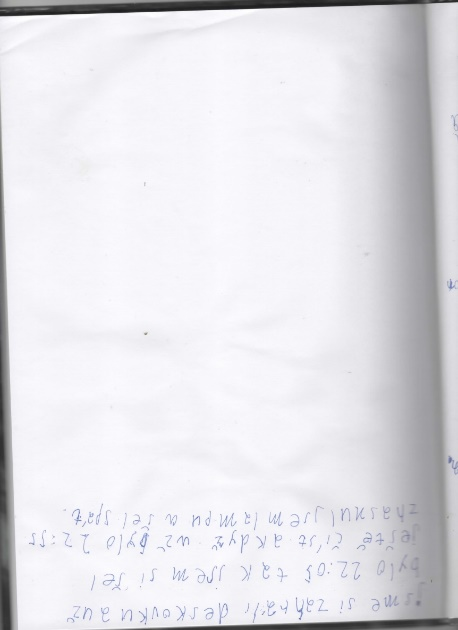 jsme si zahráli deskovku a už
bylo 22:05 tak jsem si šel
ještě číst a když už bylo 22:55
zhasnul jsem lampu a šel spát.